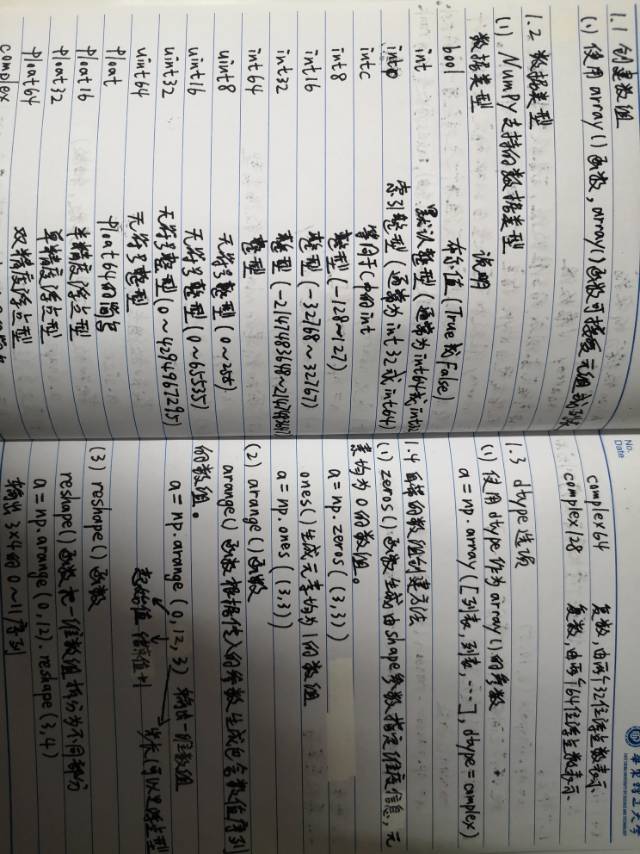 1.1 创建数组
(1) 使用array()函数，array()函数可接受元组或列表
1.2 数据类型
(1) NumPy支持的数据类型
数据类型 说明
bool 布尔值 (True 或 False)
int 默认整型 (通常为int64或int32
intp 索引整型 (通常为int32或int64)
intc 等同于C中的int
int8 整型 (-128~127)
int16 整型 (-32768~32767)
int32 整型 (-2147483648~2147483647)
int64 整型
uint8 无符号整型 (0~255)
uint16 无符号整型 (0~65535)
uint32 无符号整型 (0~4294967295)
uint64 无符号整型
float float64的简写
float16 半精度浮点型
float32 单精度浮点型
float64 双精度浮点型
complex
No.
Date
华东理工大学
complex64 复数，由两个32位浮点数表示
complex128 复数，由两个64位浮点数表示.
1.3 dtype选项
(1) 使用dtype作为array()的参数
a = np.array([列表, 列表, …], dtype=complex)
1.4 自带的数组创建方法
(1) zeros()函数生成由shape参数指定维度信息，元
素均为0的数组。
a = np.zeros((3,3))
ones()生成元素均为1的数组
a = np.ones((3,3))
(2) arange()函数
arange()函数根据传入的参数生成包含数值序列
的数组。
a = np.arange(0,12,3) 输出一维数组
起始值 结束值+1 步长(可以是浮点型
(3) reshape()函数
reshape()函数把一维数组拆分为不同部分
a = np.arange(0,12).reshape(3,4)
输出3×4的0~11序列